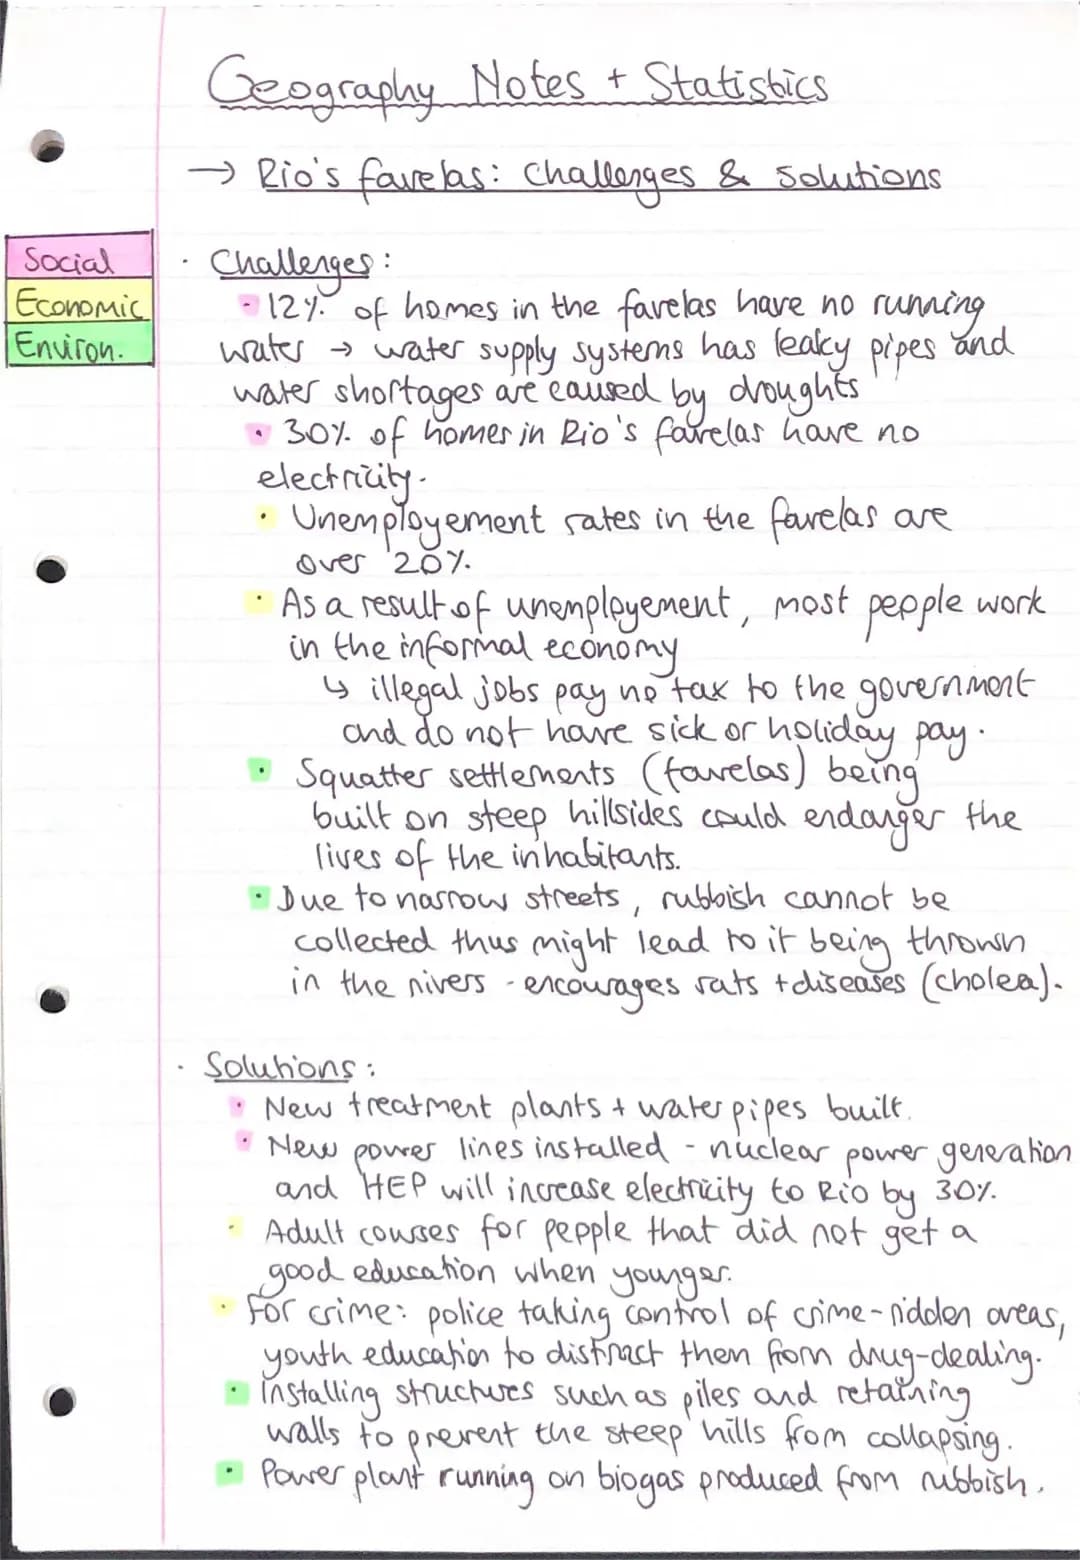 Geography Notes + Statistics
→ Rio's favelas: Challenges & solutions
Social
Economic
Environ.
· Challenges:
· 12% of homes in the favelas have no running
water → water supply systems has leaky pipes and
water shortages are caused by droughts
· 30% of homes in Rio's favelas have no
electricity.
· Unemployement rates in the favelas are
over 20%.
· As a result of unemployement, most people work
in the informal economy
↳ illegal jobs pay no tax to the government
and do not have sick or holiday pay.
· Squatter settlements (favelas) being
built on steep hillsides could endanger the
lives of the inhabitants.
· Due to narrow streets, rubbish cannot be
collected thus might lead to it being thrown
in the rivers - encourages rats + diseases (cholea).
· Solutions:
· New treatment plants + water pipes built.
· New power lines installed - nuclear power generation
and HEP will increase electricity to Rio by 30%.
· Adult courses for people that did not get a
good education when younger.
· For crime: police taking control of crime-ridden areas,
youth education to distract them from drug-dealing.
· Installing structures such as piles and retaining
walls to prevent the steep hills from collapsing.
· Power plant running on biogas produced from rubbish.